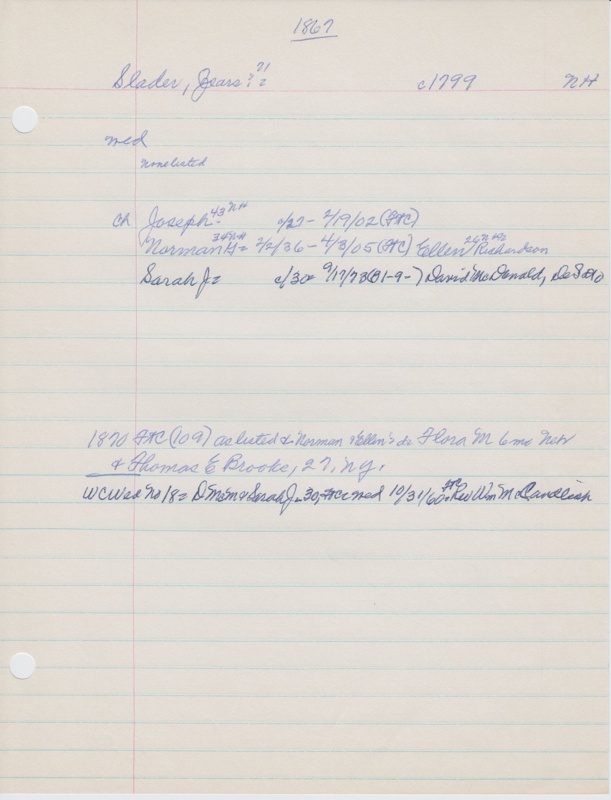 1867
Slader, Jears?? 71 c1799 NH
med
none listed
ch Joseph- 43 NH c/27 - 2/19/02 (FtC)
Norman H= 34 NH 2/2/36 - 4/3/05 (FtC) Ellen Richardson 26
Sarah J= c/30- 9/17/78 (81-9-) David McDonald, DeSoto
1870 FtC (109) as listed & Norman & Ellen's da Flora M 6mo Nebr
& Thomas E Brooke, 27, ny.
WCWed No 18= D McM & Sarah J. 30, FtC med 10/31/60 FtC Rev Wm McCandlish